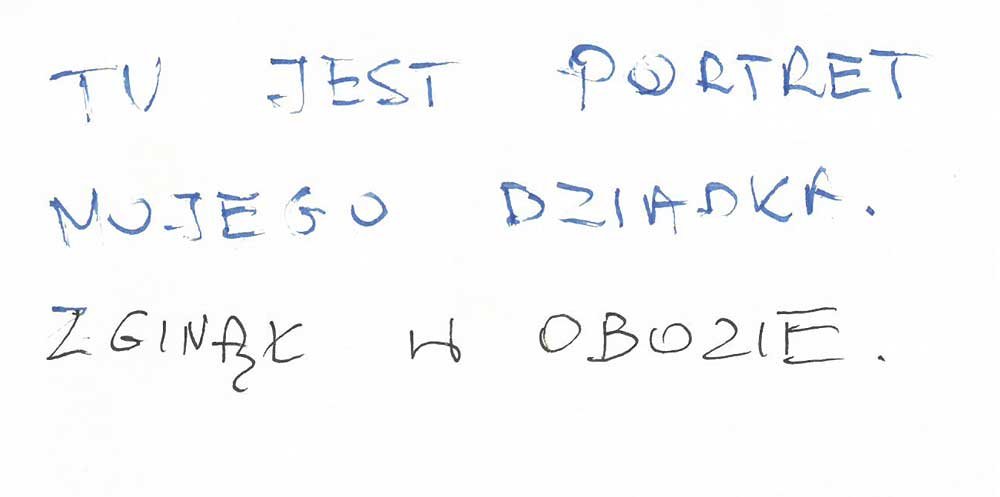 TU JEST PORTRET
MOJEGO DZIADKA.
ZGINĄŁ W OBOZIE.